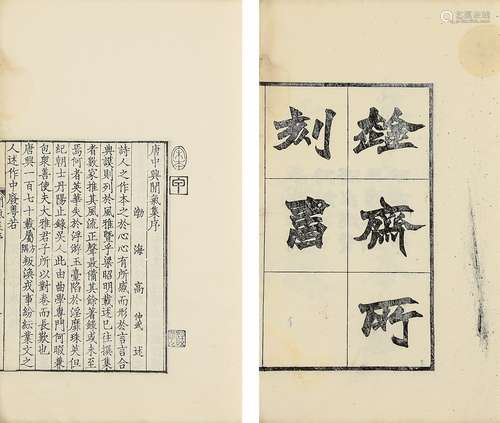 齋所
刻書
唐中興閒氣集序
渤海高仲武述
詩人之作本之於心心有所感而形於言言合
典謨則列於風雅暨乎梁昭明載述已往撰集
者數家推其風流正聲最備其餘著錄或未至
焉何者英華失於浮游玉臺陷於淫靡珠英但
紀朝士丹陽止錄吳人此由曲學專門何暇兼
包衆善使夫大雅君子所以對卷而長歎也
唐興一百七十載屬方隅叛渙戎事紛紜業文之
人述作中廢粵若